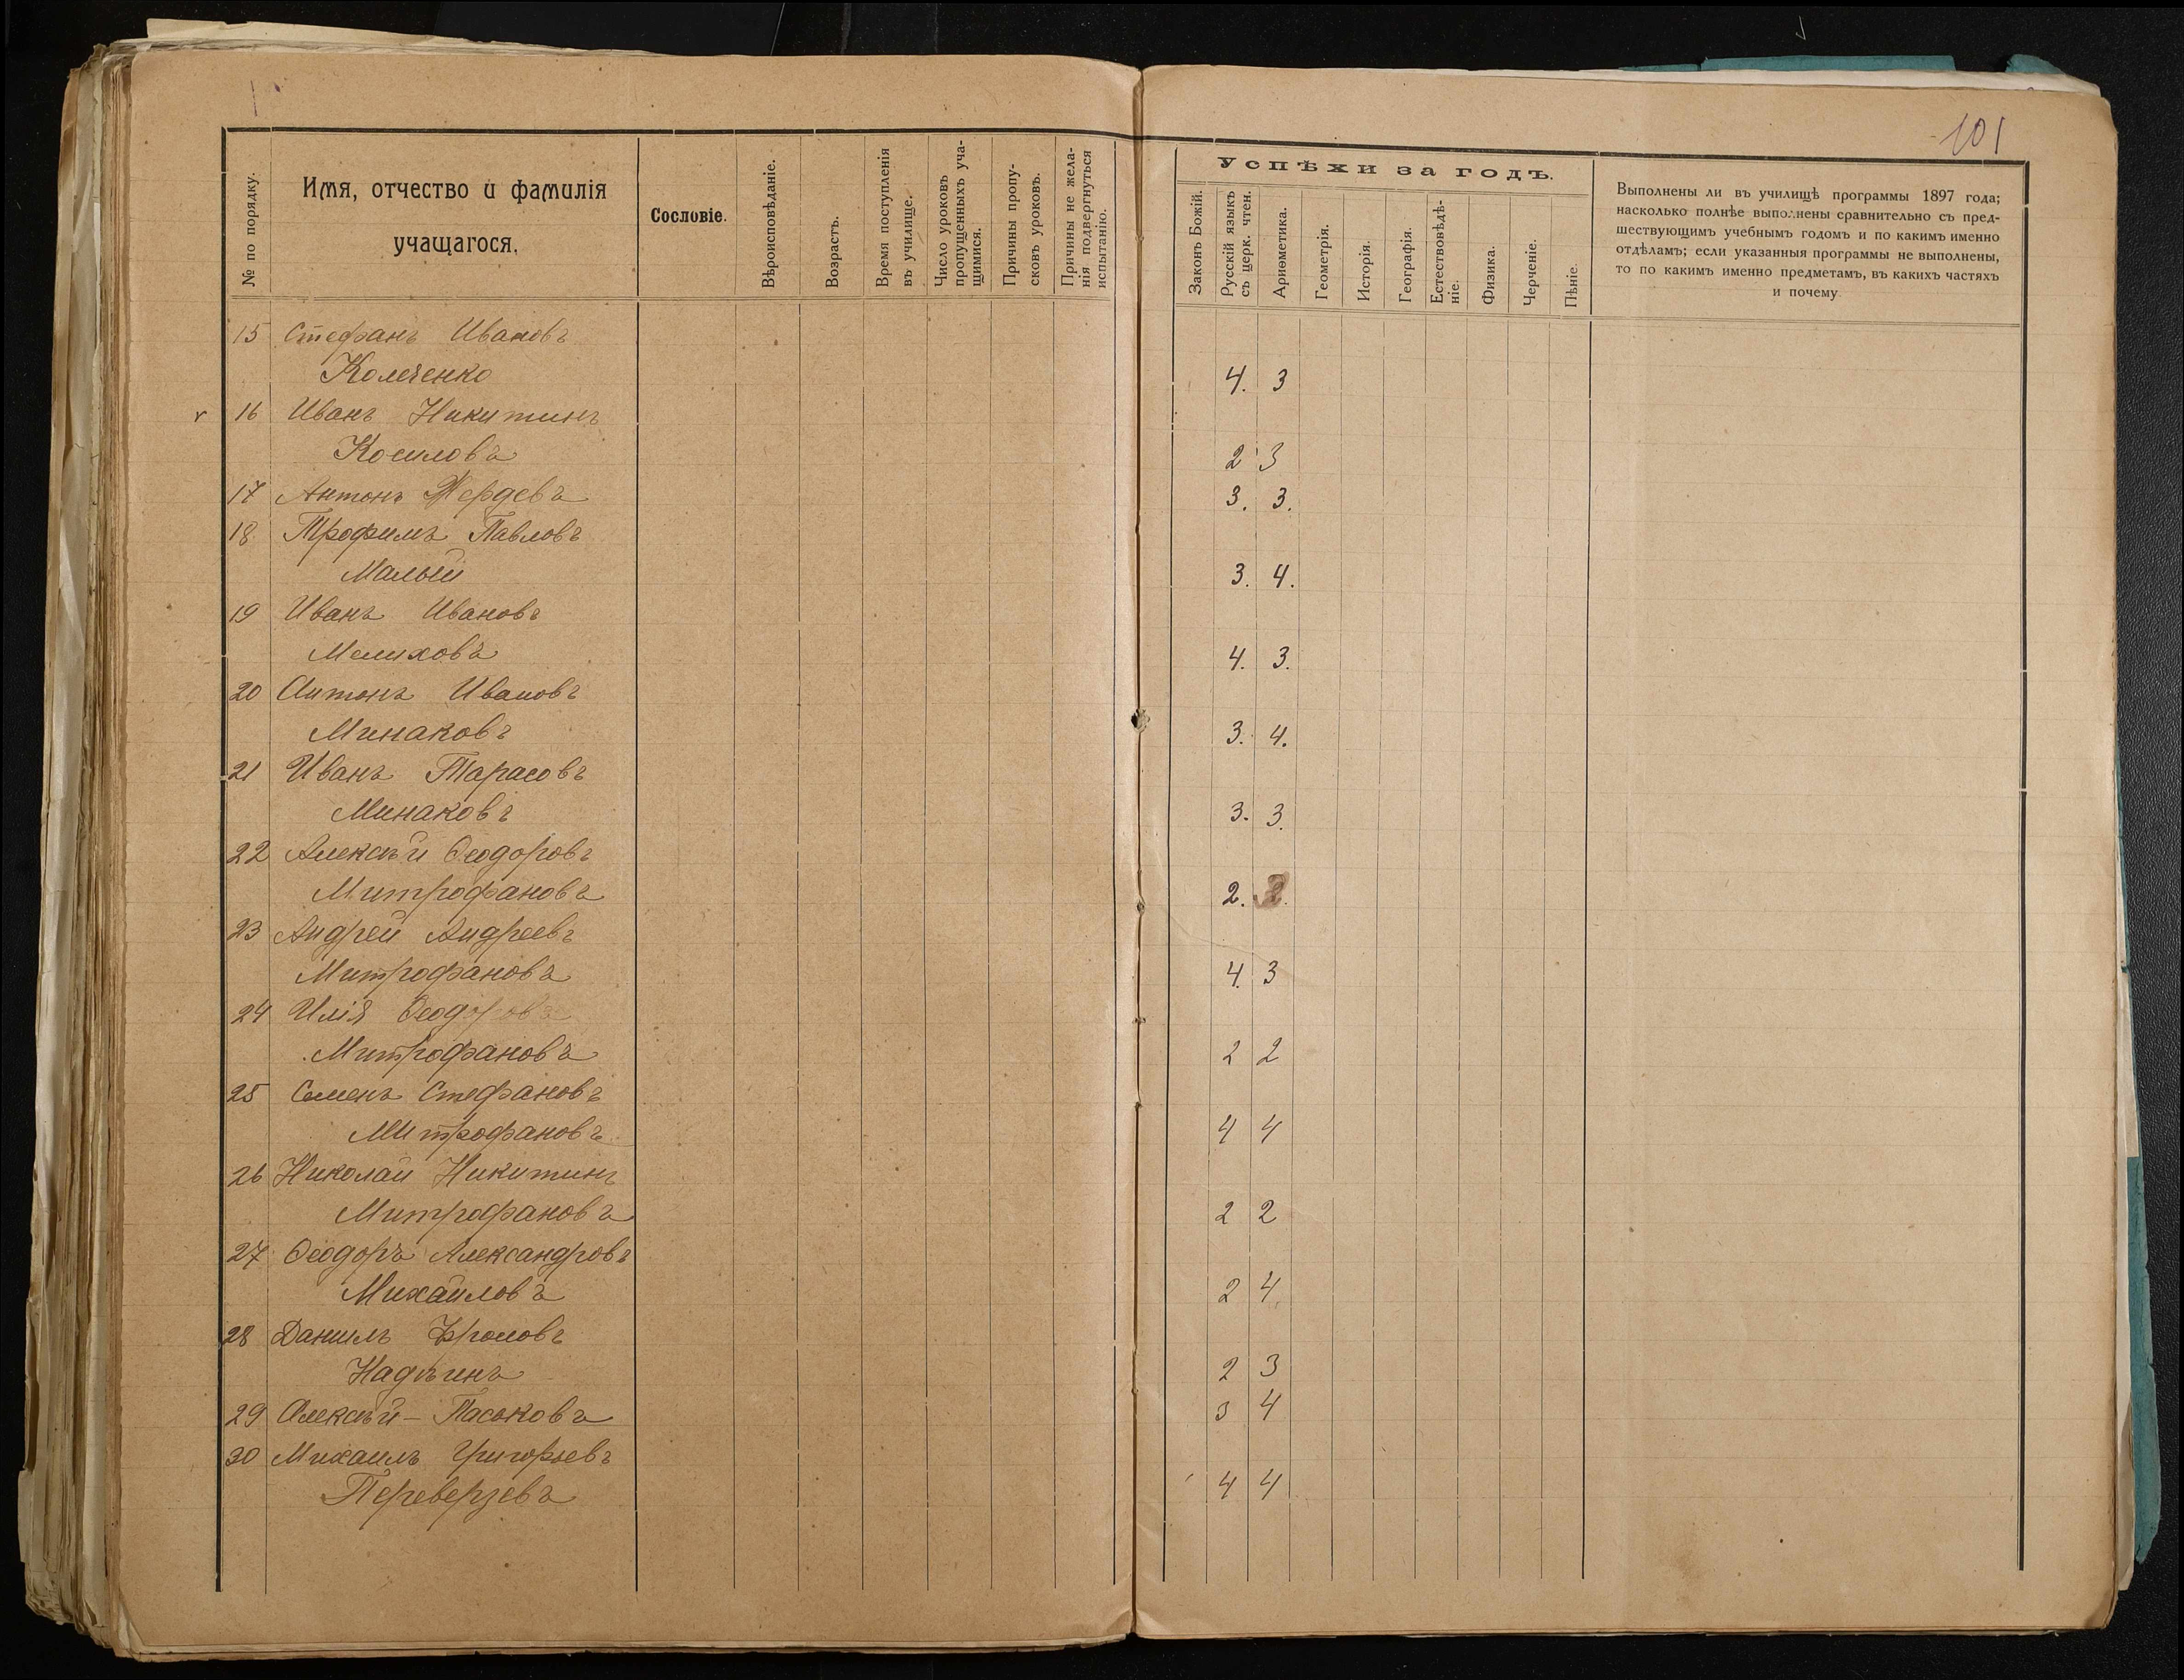 101
№ по порядку.
Имя, отчество и фамилія
учащагося.
Сословіе.
Вѣроисповѣданіе.
Возрастъ.
Время поступленія
въ училище.
Число уроковъ
пропущенныхъ уча-
щимися.
Причины пропу-
сковъ уроковъ.
Причины не жела-
нія подвергнуться
испытанію.
Успѣхи за годъ.
Законъ Божій.
Русскій языкъ
съ церк. чтен.
Ариѳметика.
Геометрія.
Исторія.
Географія.
Естествовѣдѣ-
ніе.
Физика.
Черченіе.
Пѣніе.
Выполнены ли въ училищѣ программы 1897 года;
насколько полнѣе выполнены сравнительно съ пред-
шествующимъ учебнымъ годомъ и по какимъ именно
отдѣламъ; если указанныя программы не выполнены,
то по какимъ именно предметамъ, въ какихъ частяхъ
и почему.
15 Стефанъ Ивановъ
Колеченко 4. 3
16 Иванъ Никитинъ
Косиловъ 2 3
17 Антонъ Жердевъ 3. 3.
18 Трофимъ Павловъ
Малый 3. 4.
19 Иванъ Ивановъ
Мелиховъ 4. 3.
20 Антонъ Ивановъ
Минаковъ 3. 4.
21 Иванъ Тарасовъ
Минаковъ 3. 3.
22 Алексѣй Ѳеодоровъ
Митрофановъ 2.
23 Андрей Андреевъ
Митрофановъ 4. 3
24 Илія Ѳеодоровъ
Митрофановъ 2 2
25 Семенъ Стефановъ
Митрофановъ 4 4
26 Николай Никитинъ
Митрофановъ 2 2
27 Ѳеодоръ Александровъ
Михайловъ 2 4
28 Даніилъ Фроловъ
Надѣинъ 2 3
29 Алексѣй - Паськовъ 3 4
30 Михаилъ Григорьевъ
Переверзевъ 4 4